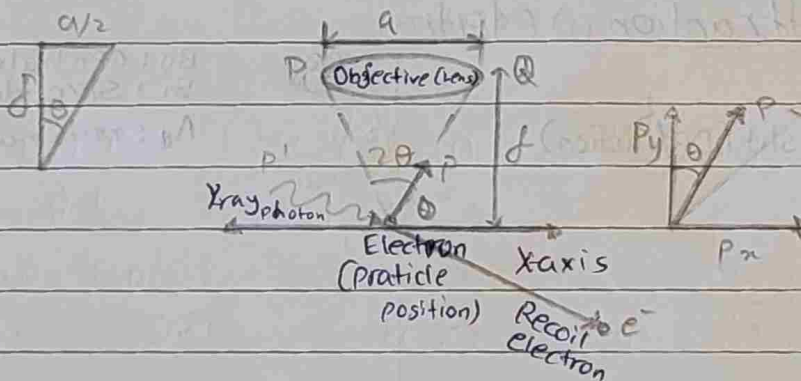 a/2
a
P
Objective (Lens)
Q
f
θ
2θ
f
P'
P
θ
Xray photon
Electron
(praticle
position)
X axis
Recoil
electron
e⁻
Py
θ
P
Px